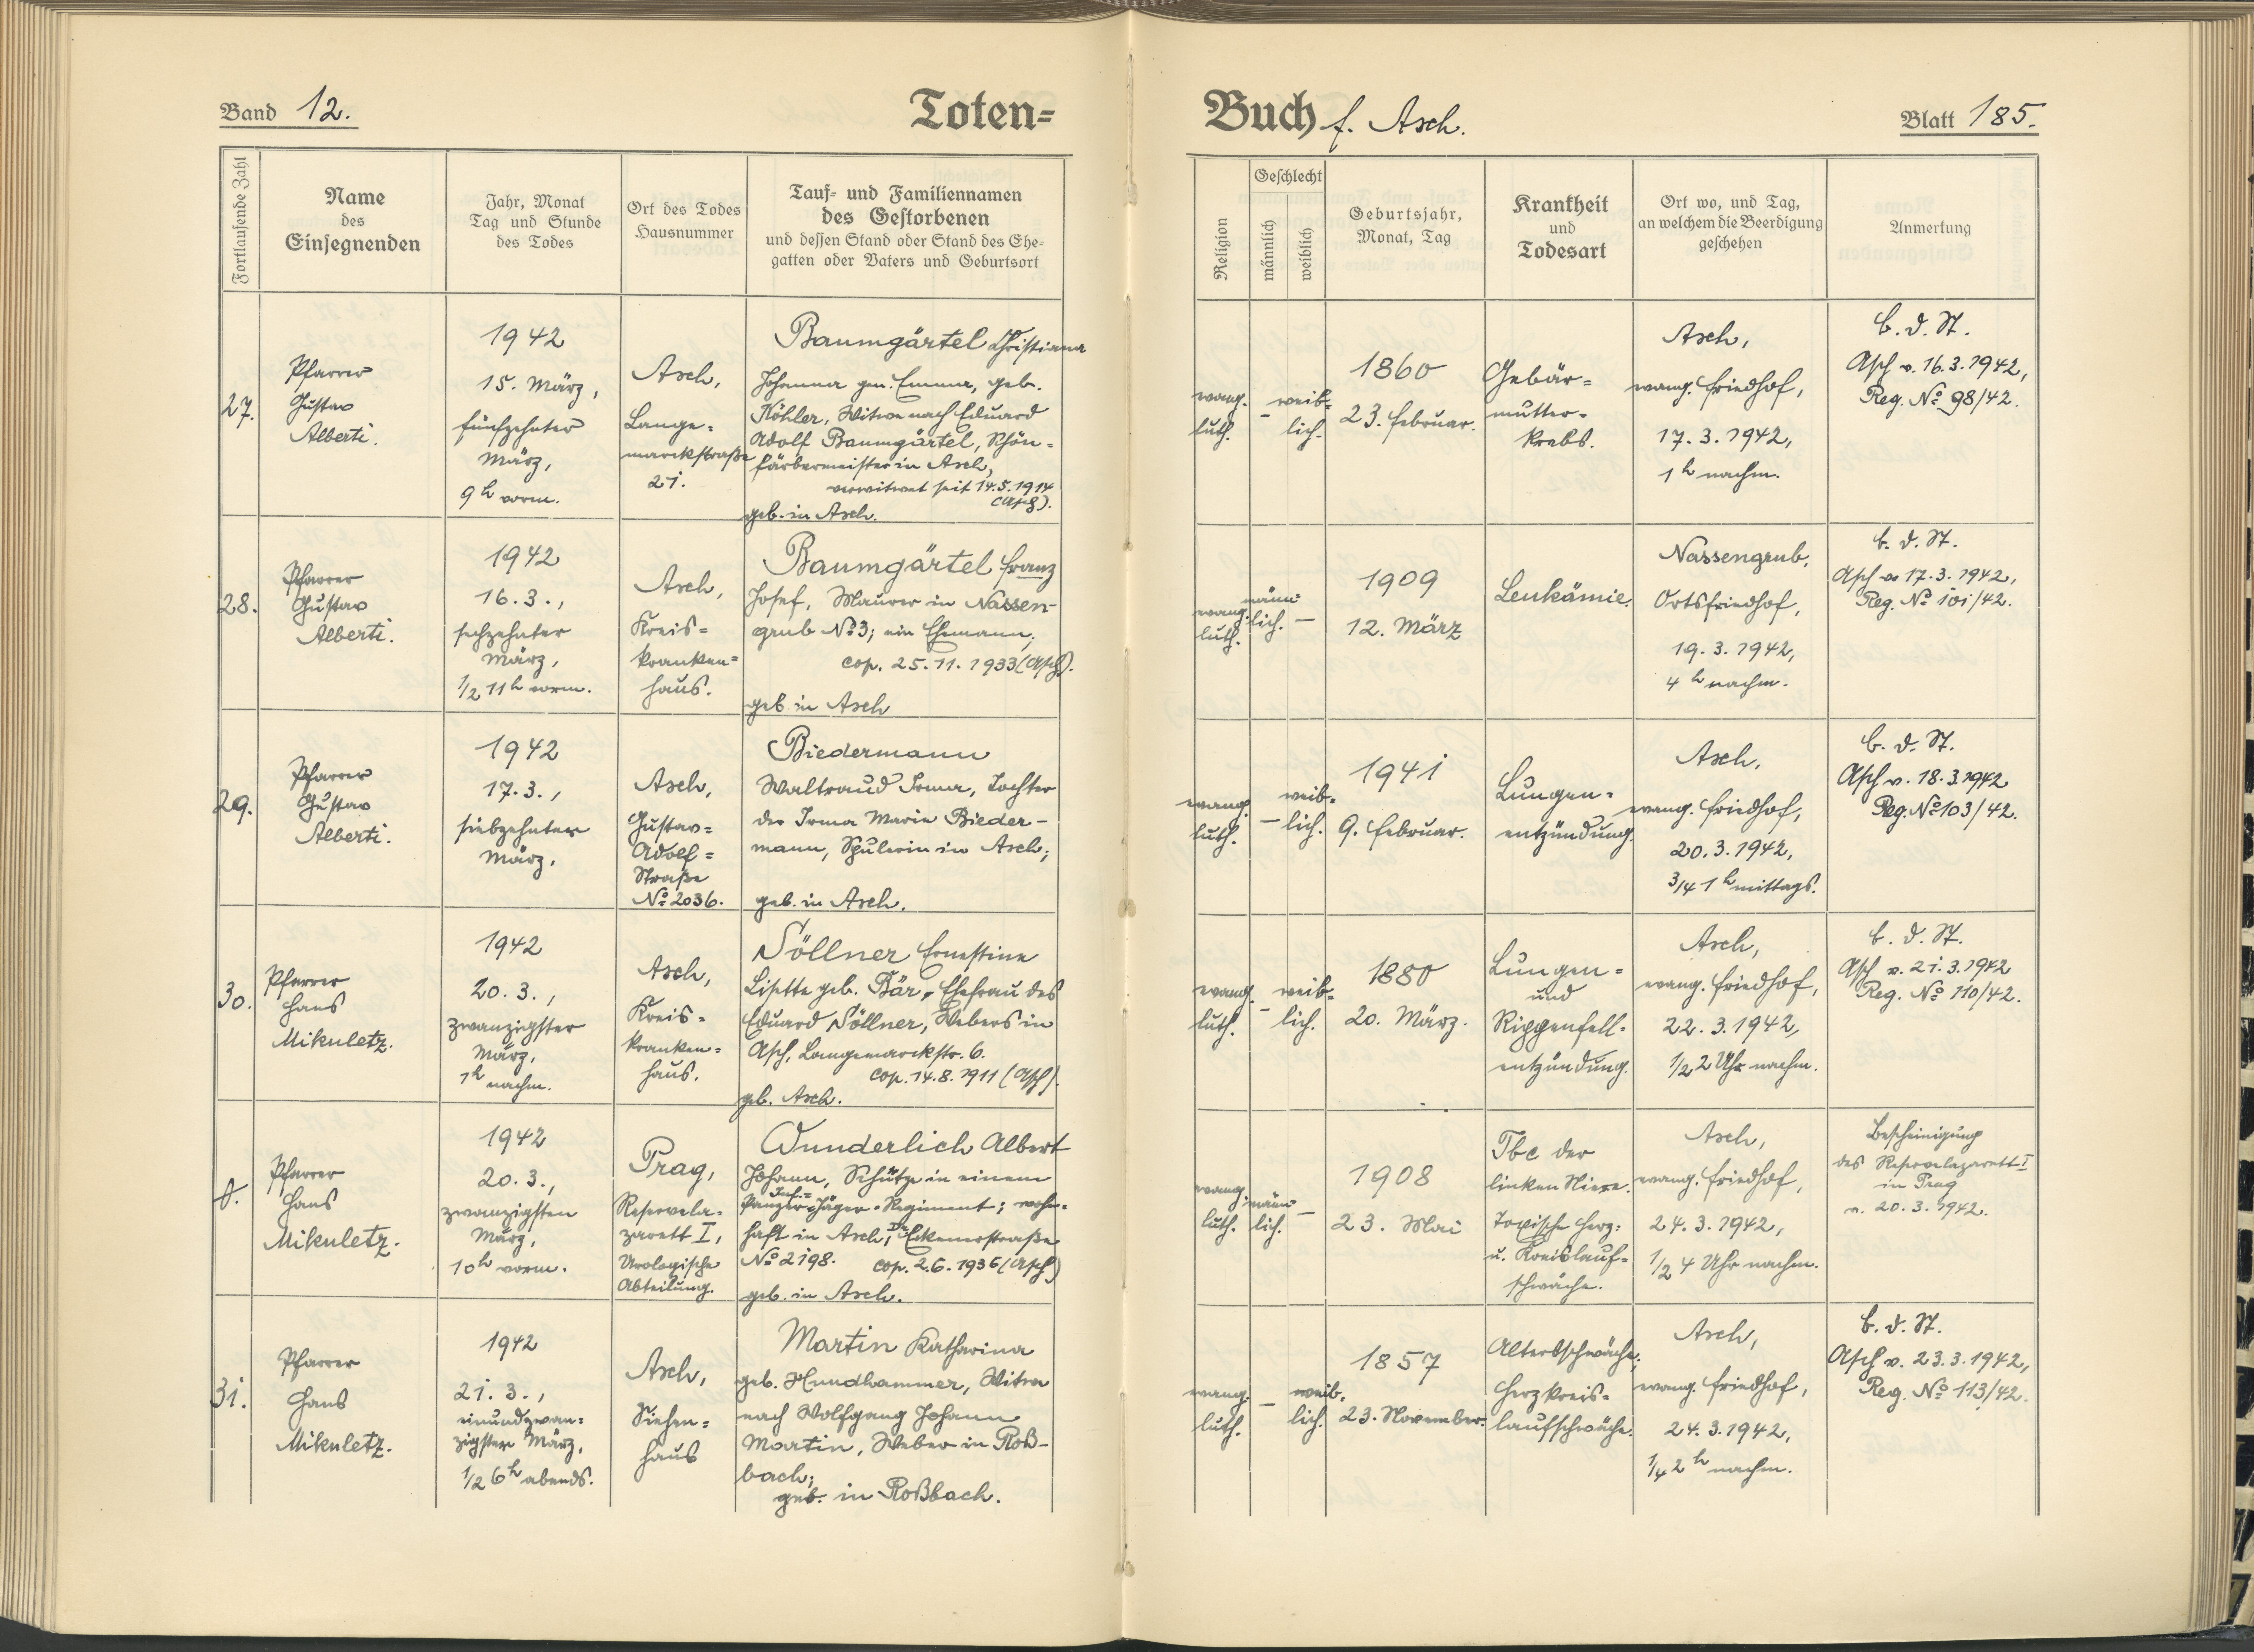 Band 12.
Toten=
Buch f. Asch.
Blatt 185.
Fortlaufende Zahl
Name
des
Einsegnenden
Jahr, Monat
Tag und Stunde
des Todes
Ort des Todes
Hausnummer
Tauf= und Familiennamen
des Gestorbenen
und dessen Stand oder Stand des Ehe=
gatten oder Vaters und Geburtsort
Religion
Geschlecht
männlich
weiblich
Geburtsjahr,
Monat, Tag
Krankheit
und
Todesart
Ort wo, und Tag,
an welchem die Beerdigung
geschehen
Anmerkung
27.
Pfarrer
Gustav
Alberti.
1942
15. März,
fünfzehnter
März,
9h vorm.
Asch,
Lange=
marckstraße
21.
Baumgärtel Christiana
Johanna gen. Emma, geb.
Köhler, Witwe nach Eduard
Adolf Baumgärtel, Schön=
färbermeister in Asch,
verwitwet seit 14.5.1914
(Asch).
geb. in Asch.
evang.
luth.
–
weib=
lich.
1860
23. Februar.
Gebär=
mutter=
krebs.
Asch,
evang. Friedhof,
17.3.1942,
1h nachm.
B. d. St.
Asch v. 16.3.1942,
Reg. No 98/42.
28.
Pfarrer
Gustav
Alberti.
1942
16.3.,
sechzehnter
März,
1/2 11h vorm.
Asch,
Kreis=
kranken=
haus.
Baumgärtel Franz
Josef, Maurer in Nassen-
grub No 3; ein Ehemann;
cop. 25.11.1933 (Asch).
geb. in Asch
evang.
luth.
männ=
lich.
–
1909
12. März
Leukämie.
Nassengrub,
Ortsfriedhof,
19.3.1942,
4h nachm.
B. d. St.
Asch v. 17.3.1942,
Reg. No 101/42.
29.
Pfarrer
Gustav
Alberti.
1942
17.3.,
siebzehnter
März.
Asch,
Gustav=
Adolf=
Straße
No 2036.
Biedermann
Waltraud Irma, Tochter
der Irma Marie Bieder-
mann, Spulerin in Asch;
geb. in Asch.
evang.
luth.
–
weib=
lich.
1941
9. Februar.
Lungen=
entzündung.
Asch,
evang. Friedhof,
20.3.1942,
3/4 1h mittags.
B. d. St.
Asch v. 18.3.1942
Reg. No 103/42.
30.
Pfarrer
Hans
Mikuletz.
1942
20.3.,
zwanzigster
März,
1h nachm.
Asch,
Kreis=
kranken=
haus.
Söllner Ernestine
Lisette geb. Bär, Ehefrau des
Eduard Söllner, Webers in
Asch, Langemarckstr. 6.
cop. 14.8.1911 (Asch).
geb. Asch.
evang.
luth.
–
weib=
lich.
1880
20. März.
Lungen=
und
Rippenfell=
entzündung.
Asch,
evang. Friedhof,
22.3.1942,
1/2 2 Uhr nachm.
B. d. St.
Asch v. 21.3.1942
Reg. No 110/42.
Pfarrer
Hans
Mikuletz.
1942
20.3.,
zwanzigsten
März,
10h vorm.
Prag,
Reservela=
zarett I,
Urologische
Abteilung.
Wunderlich Albert
Johann, Schütze in einem
Panzer=Jäger=Regiment; wohn=
haft in Asch, Dr Eckenerstraße
No 2198. cop. 2.6.1936 (Asch)
geb. in Asch.
evang.
luth.
männ=
lich.
–
1908
23. Mai
Tbc der
linken Niere.
Toxische Herz=
u. Kreislauf=
schwäche.
Asch,
evang. Friedhof,
24.3.1942,
1/2 4 Uhr nachm.
Bescheinigung
des Reservelazarett I
in Prag
v. 20.3.1942.
31.
Pfarrer
Hans
Mikuletz.
1942
21.3.,
einundzwan=
zigster März,
1/2 6h abends.
Asch,
Siechen=
haus
Martin Katharina
geb. Hundhammer, Witwe
nach Wolfgang Johann
Martin, Weber in Roß-
bach;
geb. in Roßbach.
evang.
luth.
–
weib.
lich.
1857
23. November.
Altersschwäche,
Herzkreis=
laufschwäche.
Asch,
evang. Friedhof,
24.3.1942,
1/4 2h nachm.
B. d. St.
Asch v. 23.3.1942,
Reg. No 113/42.